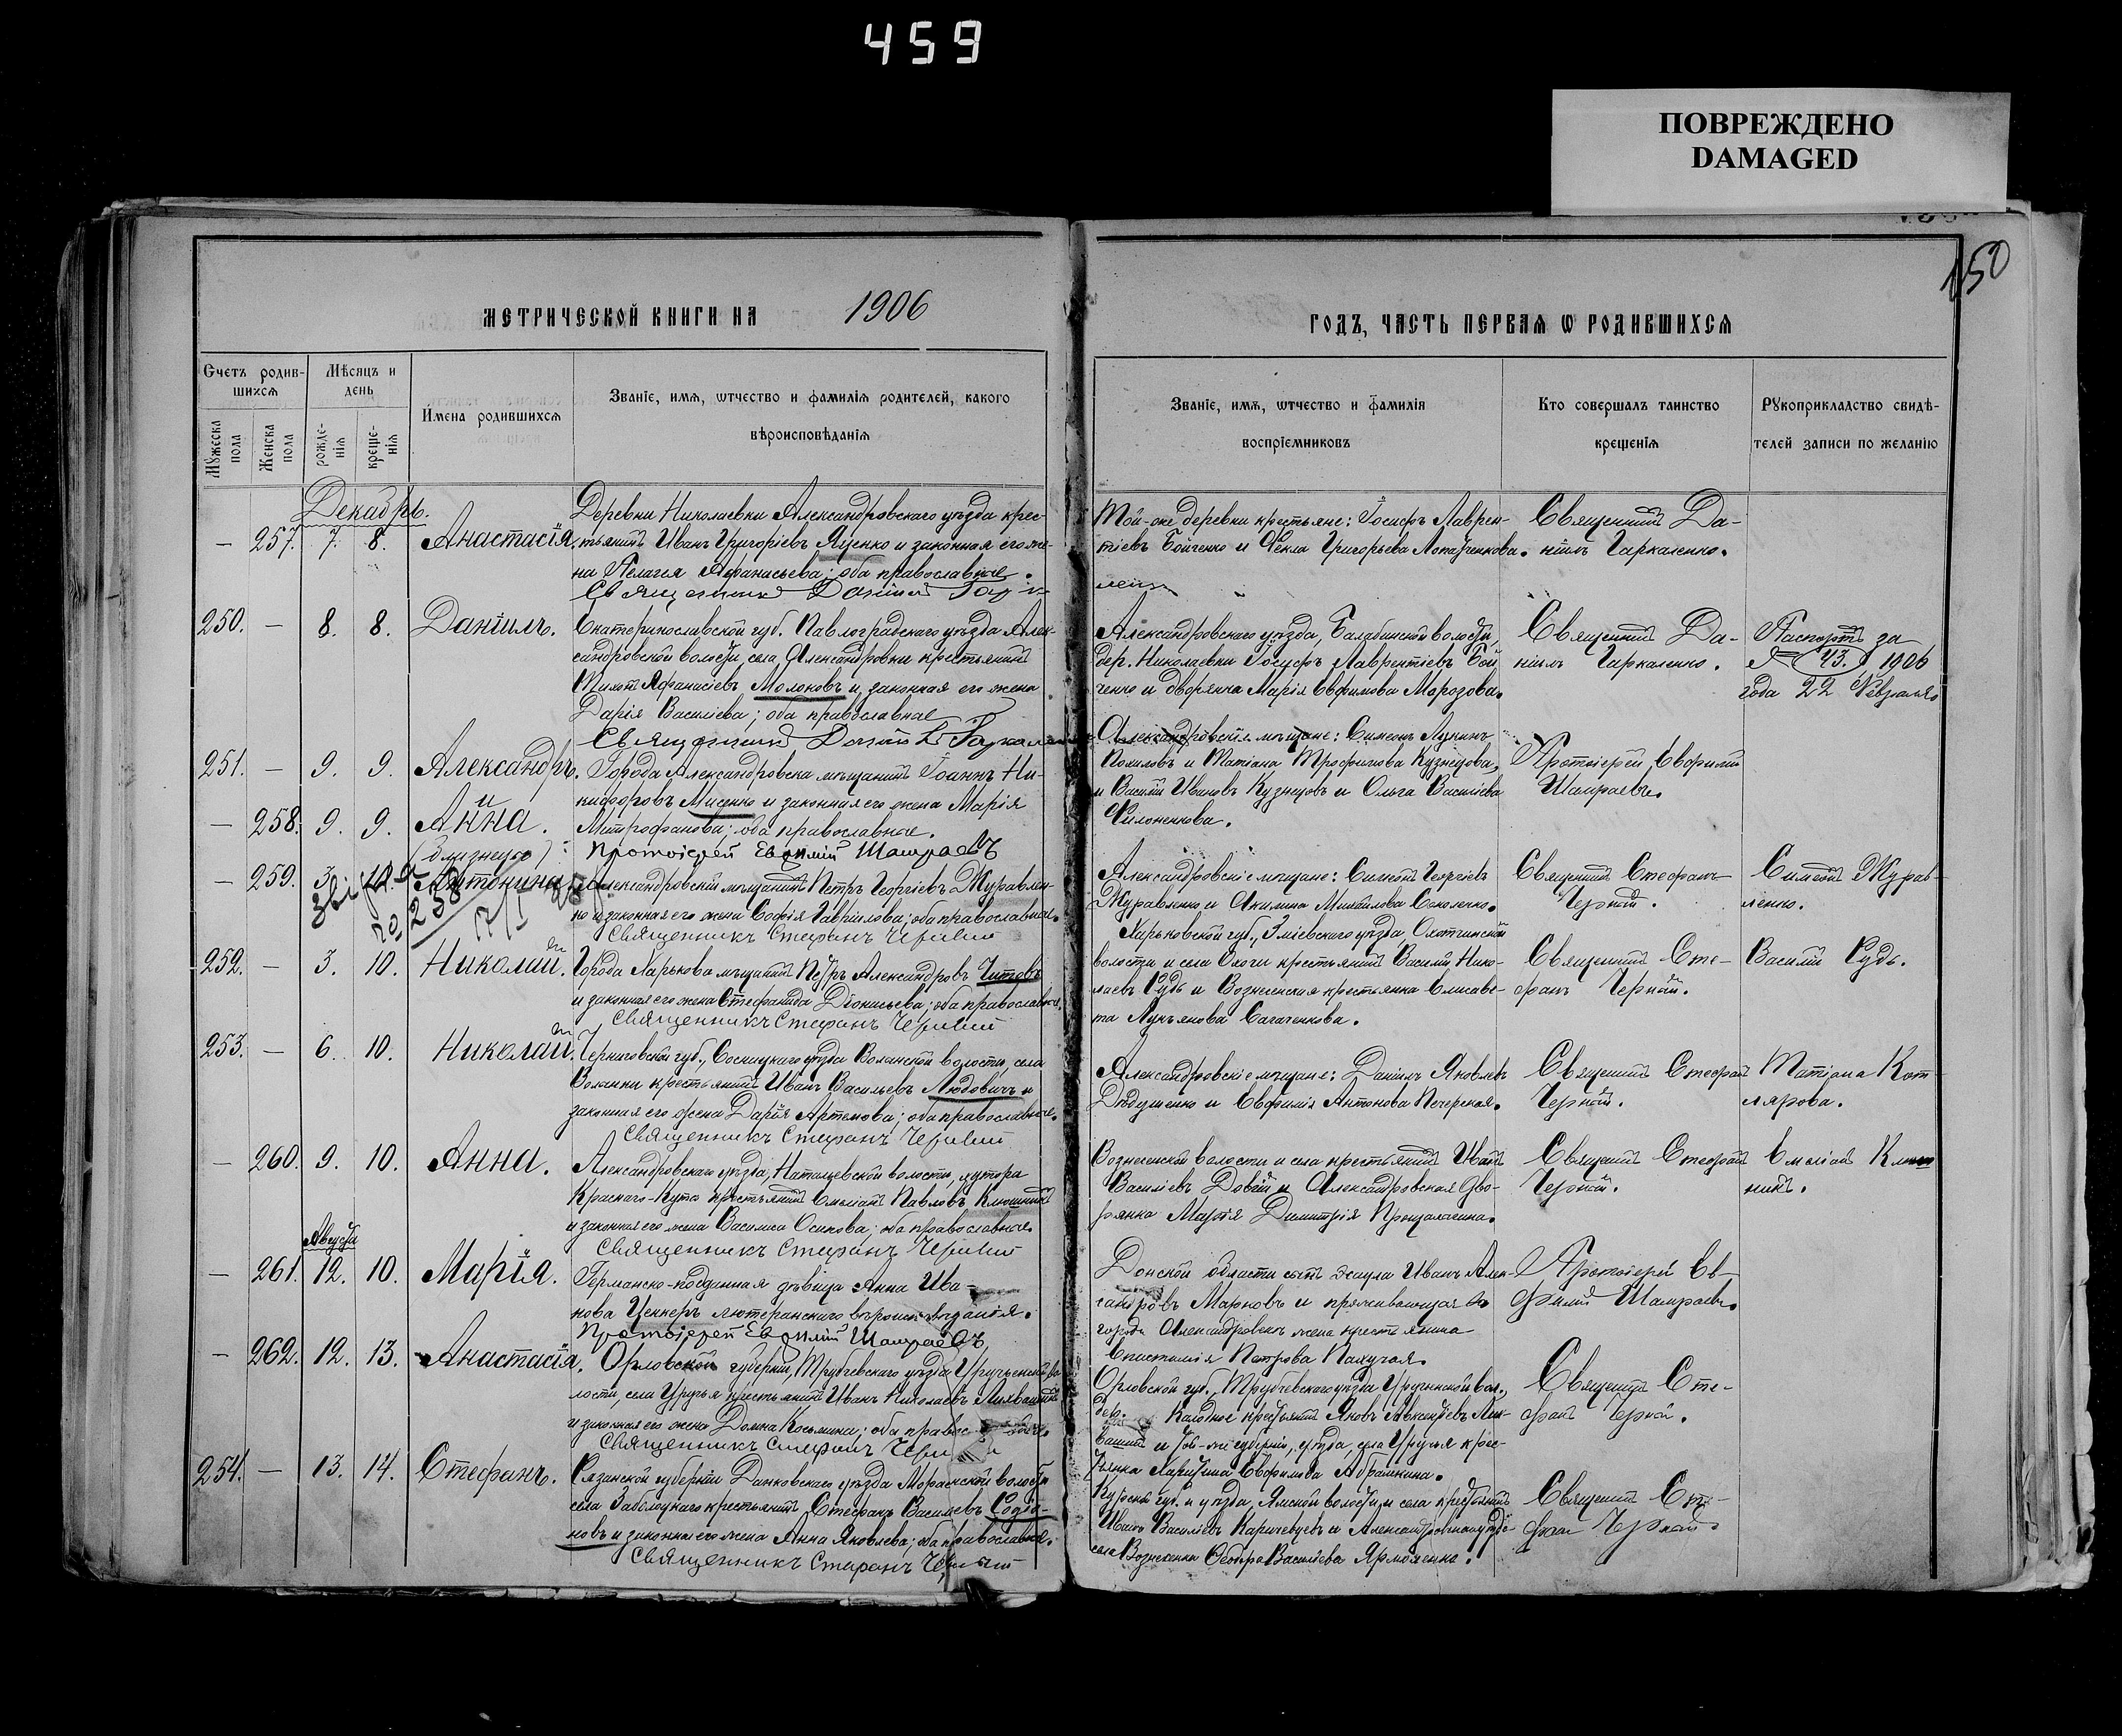 459
ПОВРЕЖДЕНО
DAMAGED
150
МЕТРИЧЕСКОЙ КНИГИ НА 1906
ГОДЪ, ЧАСТЬ ПЕРВАЯ Ѡ РОДИВШИХСЯ
Счетъ родив-
шихся
Мѣсяцъ и
день
Мужеска
пола
Женска
пола
рожде-
нія
креще-
нія
Имена родившихся
Званіе, имя, ѡтчество и фамилія родителей, какого
вѣроисповѣданія
Званіе, имя, ѡтчество и фамилія
воспріемниковъ
Кто совершалъ таинство
крещенія
Рукоприкладство свидѣ-
телей записи по желанію
Декабрь.
— 257. 7. 8. Анастасія.
Деревни Николаевки Александровскаго уѣзда крес-
тьянинъ Иванъ Григоріевъ Яценко и законная его же-
на Пелагея Аѳанасьева; оба православные.
Священникъ Даніилъ
Той-же деревни крестьяне: Іосифъ Лаврен-
тіевъ Бойченко и Ѳекла Григорьева
Священникъ Да-
ніилъ Гаркаленко.
250. — 8. 8. Даніилъ.
Екатеринославской губ. Павлоградскаго уѣзда Алек-
сандровской волости, села Александровки крестьянинъ
Аѳанасіевъ Молоковъ и законная его жена
Дарія Василіева; оба православные
Священникъ Даніилъ
Александровскаго уѣзда, Балабинской волости,
дер. Николаевки Іосифъ Лаврентіевъ Бой
ченко и дворянка Марія Евфимова Морозова.
Священникъ Да-
ніилъ Гаркаленко.
Паспортъ за
№ 43. 1906
года 22 Февраля
251. — 9. 9. Александръ.
и
— 258. 9. 9. Анна.
(близнецы)
Города Александровска мѣщанинъ Іоаннъ Ни-
кифоровъ Мисенко и законная его жена Марія
Митрофанова; оба православные.
Протоіерей Евѳимій Шамраевъ
Александровскіе мѣщане: Симеонъ
и Татіана Трофимова Кузнецова,
и Василій Ивановъ Кузнецовъ и Ольга Василіева
Филоненкова.
Протоіерей Евфимій
Шамраевъ.
— 259. 3. 10. Антонина
258
17/I
Александровскій мѣщанинъ Петръ Георгіевъ Журавлен-
ко и законная его жена Софія Гавріилова; оба православные.
Священникъ Стефанъ Черный
Александровскіе мѣщане: Симеонъ Георгіевъ
Журавленко и Акилина Михаилова Соколенко.
Священникъ Стефанъ
Черный.
Симеонъ Журав-
ленко.
252. — 3. 10. Николай.
Города Харькова мѣщанинъ Петръ Александровъ Титовъ
и законная его жена Стефанида Діонисьева; оба православные.
Священникъ Стефанъ Черный
Харьковской губ., Зміевскаго уѣзда,
волости и села Охочи крестьянинъ Василій Нико-
лаевъ Рудь и Вознесенская крестьянка Елисаве-
та Лукьянова Сагаченкова.
Священникъ Сте-
фанъ Черный.
Василій Рудь.
253. — 6. 10. Николай.
Черниговской губ., Сосницкаго уѣзда Волынской волости, села
Волынки крестьянинъ Иванъ Васильевъ Людовичъ и
законная его жена Дарія Артемова; оба православные.
Священникъ Стефанъ Черный
Александровскіе мѣщане: Даніилъ Яковлевъ
Дѣдушенко и Евфимія Антонова Печерская.
Священникъ Стефанъ
Черный.
Татіана Кот-
лярова.
— 260. 9. 10. Анна.
Александровскаго уѣзда, Наталіевской волости, хутора
Краснаго-Кута крестьянинъ Емеліанъ Павловъ Клюшникъ
и законная его жена Василиса Осипова; оба православные.
Священникъ Стефанъ Черный
Вознесенской волости и села крестьянинъ Иванъ
Василіевъ Довгій и Александровская дво-
рянка Марія Димитрія
Священникъ Стефанъ
Черный.
Емеліанъ
никъ.
Августъ
— 261. 12. 10. Марія.
Германско-подданная дѣвица Анна Ива-
нова Ценкеръ лютеранскаго вѣроисповѣданія.
Протоіерей Евѳимій Шамраевъ
Донской области сынъ эсаула Иванъ Алек-
сандровъ Марковъ и проживающая въ
городѣ Александровскѣ жена крестьянина
Епистимія Петрова Пахучая.
Протоіерей Ев-
фимій Шамраевъ.
— 262. 12. 13. Анастасія.
Орловской губерніи, Трубчевскаго уѣзда Уручьенской во-
лости, села Уручья крестьянинъ Иванъ Николаевъ
и законная его жена Домна Косьмина; оба православные.
Священникъ Стефанъ
Орловской губ., Трубчевскаго уѣзда Уручьинской вол.,
дер. крестьянинъ Яковъ Авксентіевъ
и той-же губерніи, уѣзда, села Уручья крес-
тьянка Харитина Евфимова Абрамкина.
Священникъ Сте-
фанъ Черный.
254. — 13. 14. Стефанъ.
Рязанской губерніи Данковскаго уѣзда волости
села Заболоцкаго крестьянинъ Стефанъ Василіевъ Родіо-
новъ и законная его жена Анна Яковлева; оба православные.
Священникъ Стефанъ Черный
Курской губ. и уѣзда, Ямской волости, и села крестьянинъ
Иванъ Василіевъ и Александровскаго уѣзда
села Вознесенки Василіева Ярмоленко.
Священникъ Сте-
фанъ Черный.